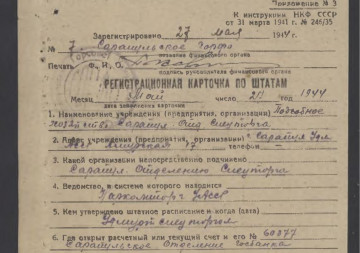 Приложение № 3
К инструкции НКФ СССР
от 31 марта 1941 г. № 246/35
Зарегистрировано 27 мая 1944 г.
№ 7 Сарапульское Горфо
название финансового органа
Печать Ф. И. О.
подпись руководителя финансового органа
РЕГИСТРАЦИОННАЯ КАРТОЧКА ПО ШТАТАМ
Месяц Май число 24 1944
дата заполнения карточки
1. Наименование учреждения (предприятия, организации) Подсобное
Сарапул. Отд.
2. Адрес (предприятия, организации) г. Сарапул
17 телефон —
3. Какой организации непосредственно подчинено
Сарапул. Отделению
4. Ведомство, в системе которого находится
Наркомторг УАССР
5. Кем утверждено штатное расписание и когда (дата)
6. Где открыт расчетный или текущий счет и его № 60377
Сарапульское Отделение Госбанка